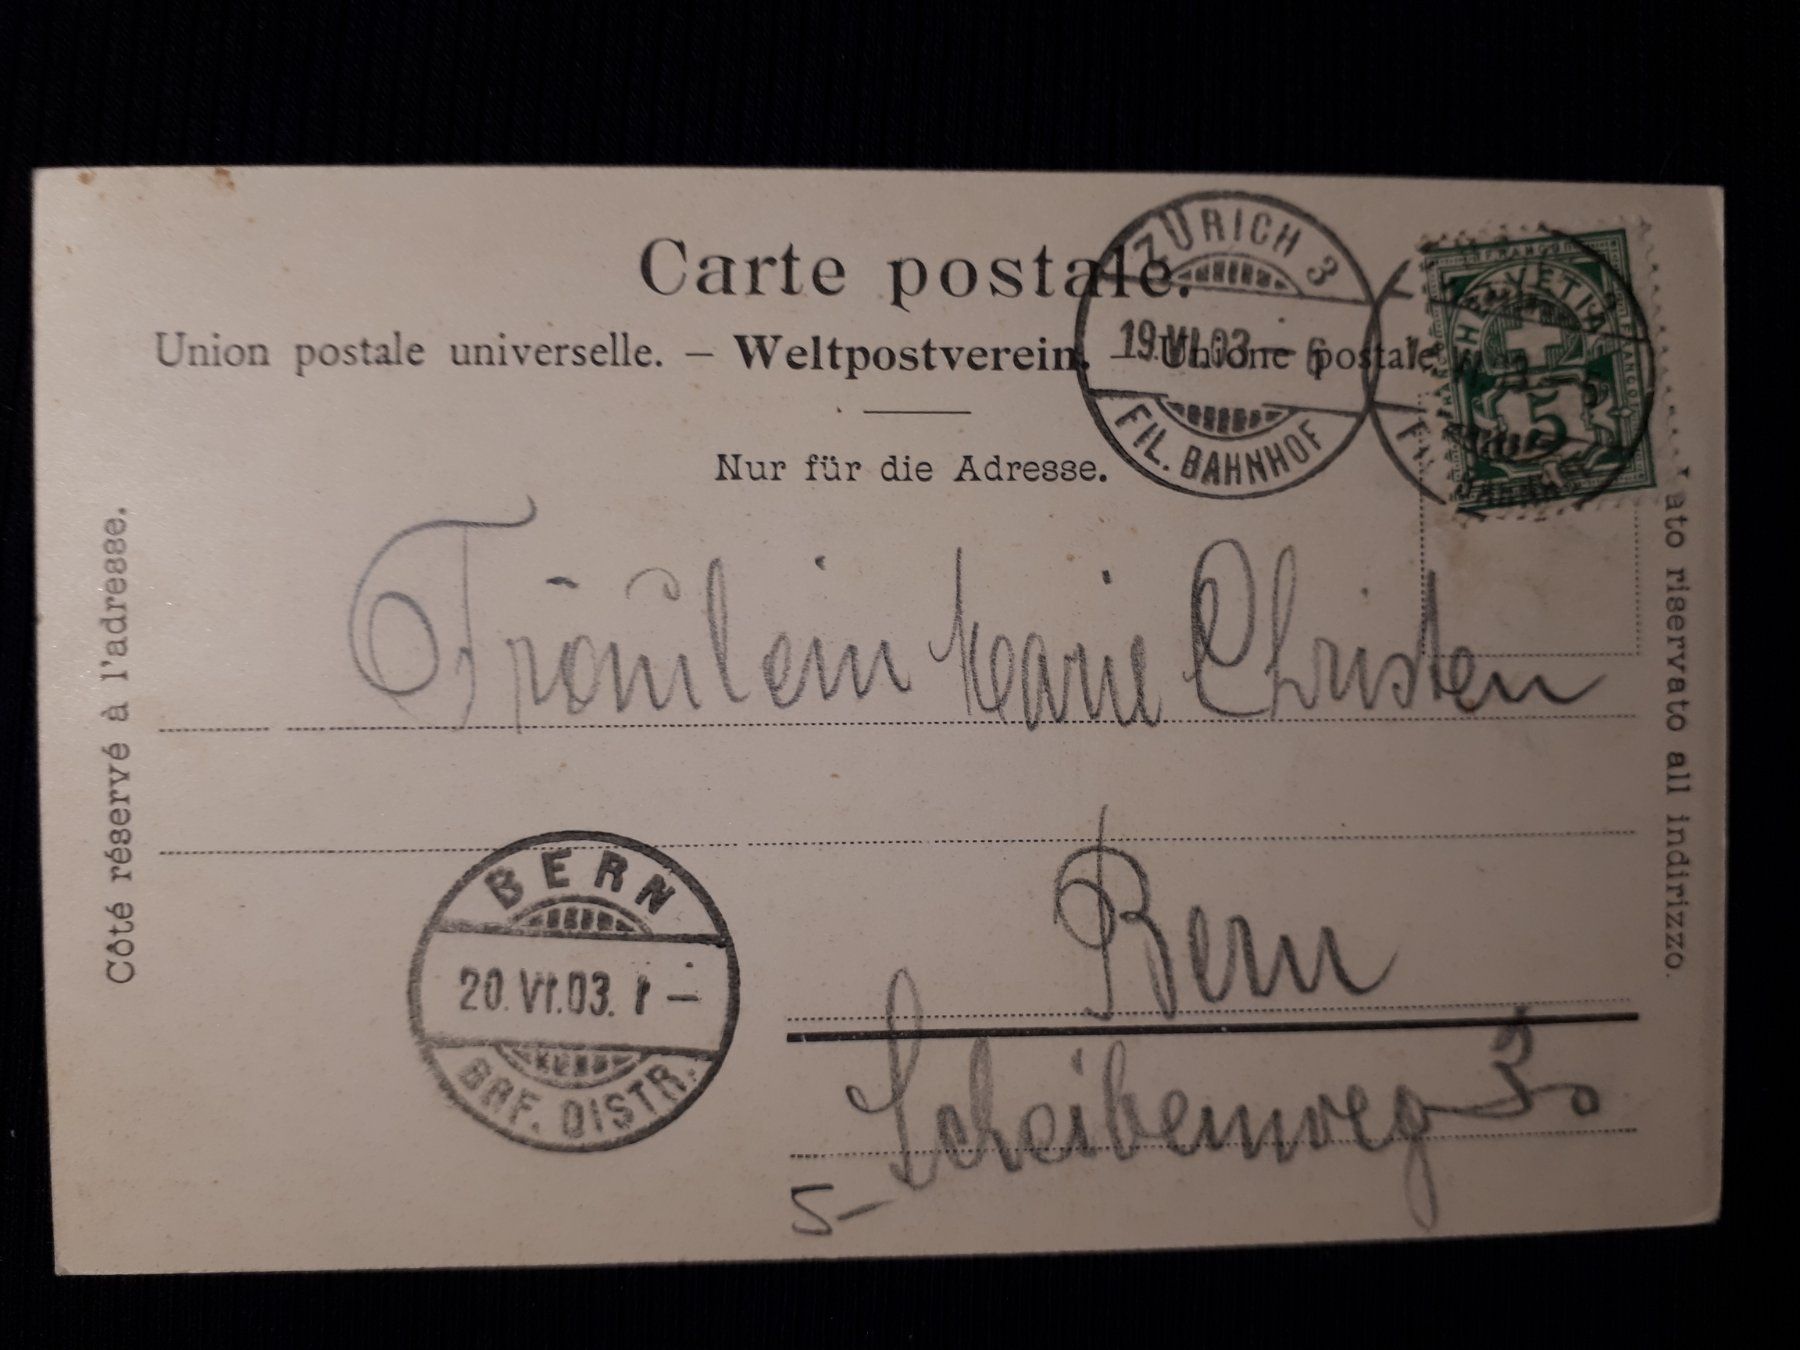 Carte postale.
Union postale universelle. – Weltpostverein. – Unione postale
Nur für die Adresse.
Côté réservé à l'adresse.
ato riservato all indirizzo.
ZÜRICH 3
19.VI.03– 6
FIL. BAHNHOF
HELVETIA
5
Fräulein Marie Christen
Bern
Scheibenweg
BERN
20.VI.03.
BRF. DISTR.
5–